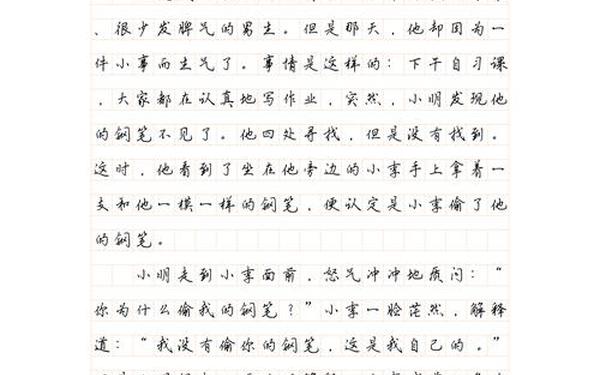 、很少发脾气的男生。但是那天，他却因为一
件小事而生气了。事情是这样的：下午自习课
，大家都在认真地写作业，突然，小明发现他
的钢笔不见了。他四处寻找，但是没有找到。
这时，他看到了坐在他旁边的小李手上拿着一
支和他一模一样的钢笔，便认定是小李偷了他
的钢笔。
小明走到小李面前，怒气冲冲地质问：“
你为什么偷我的钢笔？”小李一脸茫然，解释
道：“我没有偷你的钢笔，这是我自己的。”